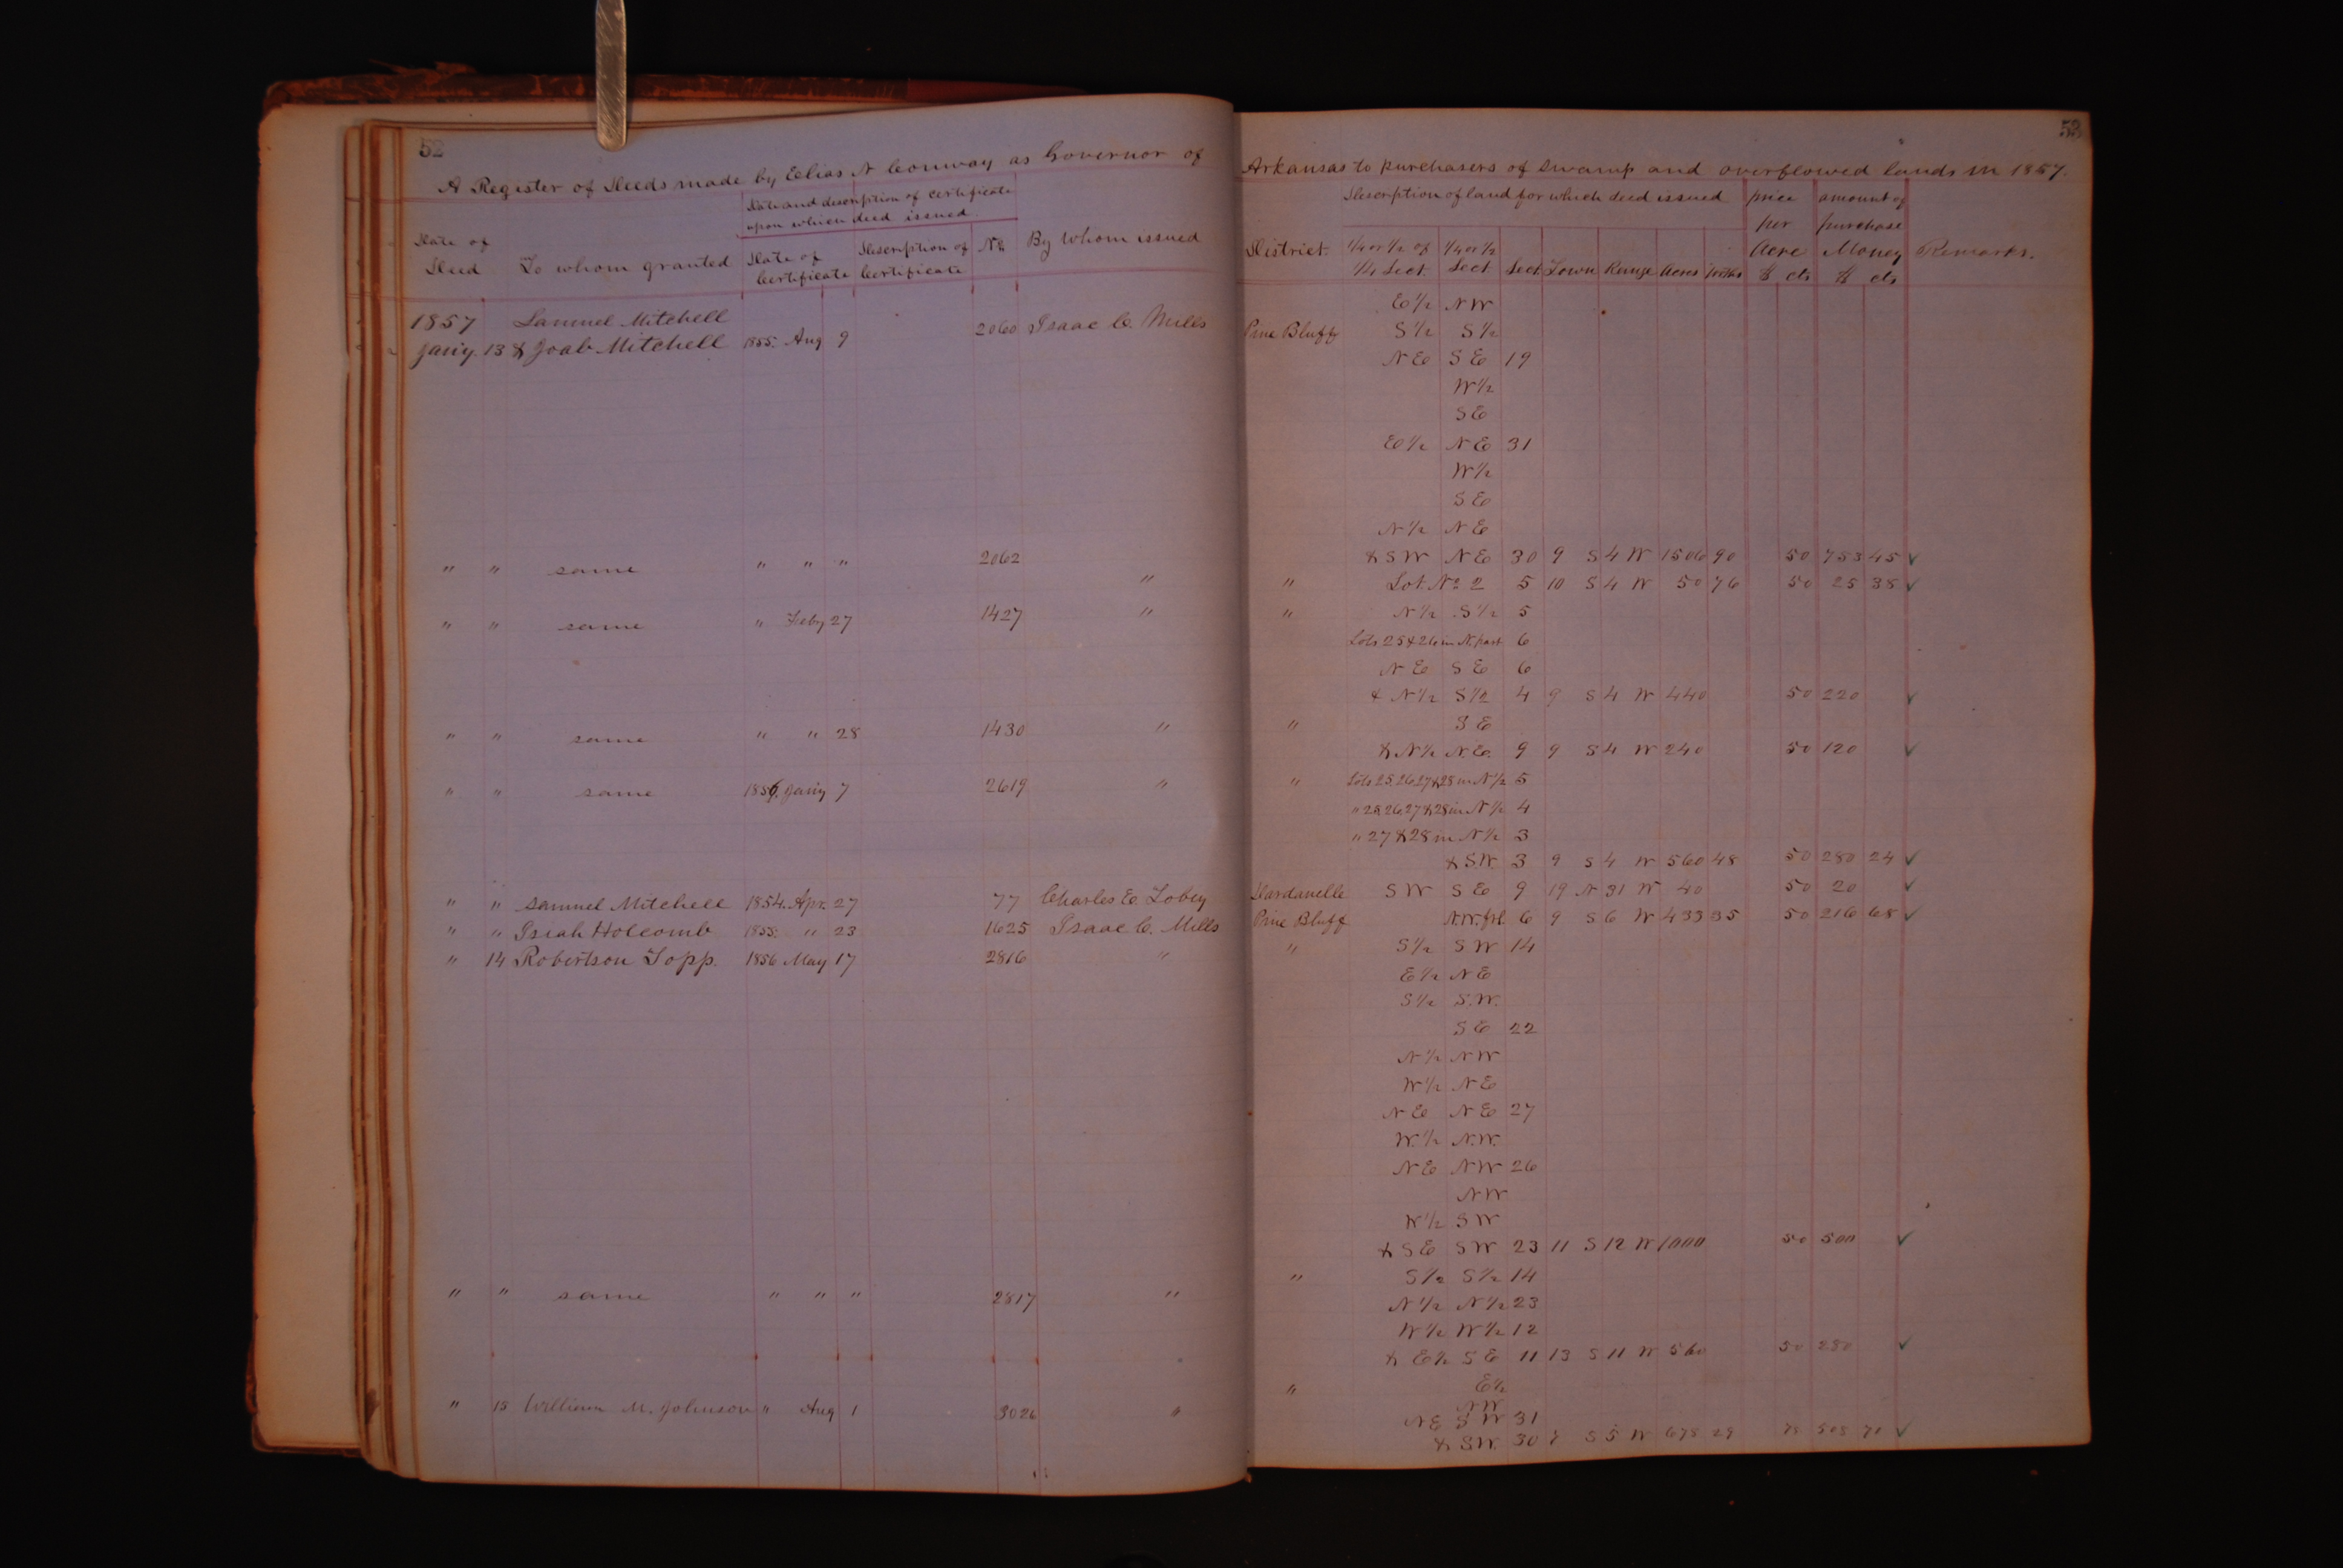 52
A Register of Deeds made by Elias N Conway as Governor of
Date and description of certificate
upon which deed issued.
Date of
Deed
To whom granted
Date of
Certificate
Description of
Certificate
No.
By Whom issued
1857 Samuel Mitchell
Jan'y. 13 & Joab Mitchell 1855. Aug 9 2060 Isaac C. Mills
" " same " " " 2062 "
" " same " Feby 27 1427 "
" " same " " 28 1430 "
" " same 1856. Jan'y 7 2619 "
" " Samuel Mitchell 1854. Apr. 27 77 Charles E. Tobey
" " Isiah Holcomb 1855. " 23 1625 Isaac C. Mills
" 14 Robertson Topp. 1856 May 17 2816 "
" " same " " " 2817 "
" 15 William M. Johnson " Aug 1 3026 "
53
Arkansas to purchasers of Swamp and overflowed lands in 1857.
Description of land for which deed issued
price
per
Acre
$ cts
amount of
purchase
Money
$ cts
Remarks.
District.
1/4 or 1/2 of
1/4 Sect.
1/4 or 1/2
Sect
Sect. Town Range Acres 100ths
E 1/2 NW
Pine Bluff S 1/2 S 1/2
NE SE 19
W 1/2
SE
E 1/2 NE 31
W 1/2
SE
N 1/2 NE
& SW NE 30 9 S 4 W 1506 90 50 753 45 ✓
" Lot No 2 5 10 S 4 W 50 76 50 25 38 ✓
" N 1/2 S 1/2 5
Lots 25 & 26 in N. part 6
NE SE 6
& N 1/2 S 1/2 4 9 S 4 W 440 50 220 ✓
" SE
& N 1/2 N.E. 9 9 S 4 W 240 50 120 ✓
" Lots 25, 26, 27 & 28 in N 1/2 5
" 25, 26, 27 & 28 in N 1/2 4
" 27 & 28 in N 1/2 3
& S.W. 3 9 S 4 W 560 48 50 280 24 ✓
Dardanelle SW SE 9 19 N 31 W 40 50 20 ✓
Pine Bluff N.W. frl. 6 9 S 6 W 433 35 50 216 68 ✓
" S 1/2 SW 14
E 1/2 NE
S 1/2 S.W.
SE 22
N 1/2 NW
W 1/2 NE
NE NE 27
W. 1/2 N.W.
NE NW 26
NW
W 1/2 SW
& SE SW 23 11 S 12 W 1000 50 500 ✓
" S 1/2 S 1/2 14
N 1/2 N 1/2 23
W 1/2 W 1/2 12
& E 1/2 SE 11 13 S 11 W 560 50 280 ✓
" E 1/2
NW
NE SW 31
& SW. 30 7 S 5 W 678 29 75 508 71 ✓